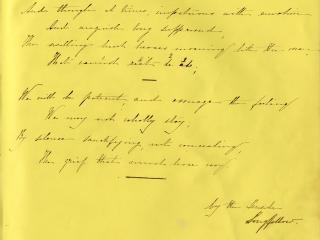 And though at times, impetuous with emotion
And anguish long suppressed,
The swelling heart heaves moaning like the ocean
That cannot rest,
We will be patient, and assuage the feeling
We may not wholly stay,
By silence sanctifying, not concealing,
The grief that must have way
by the
Longfellow.